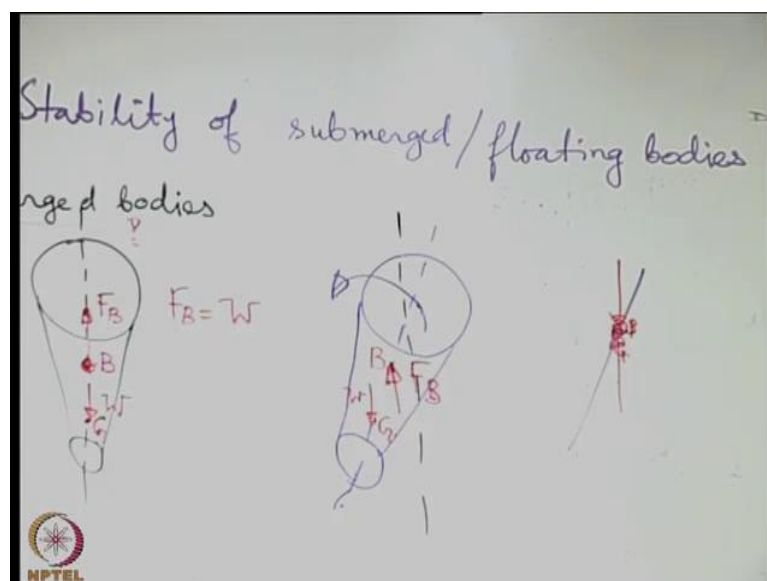 Stability of submerged/floating bodies
rged bodies
V
F_B
F_B = W
B
W
G
B
F_B
W
G
NPTEL